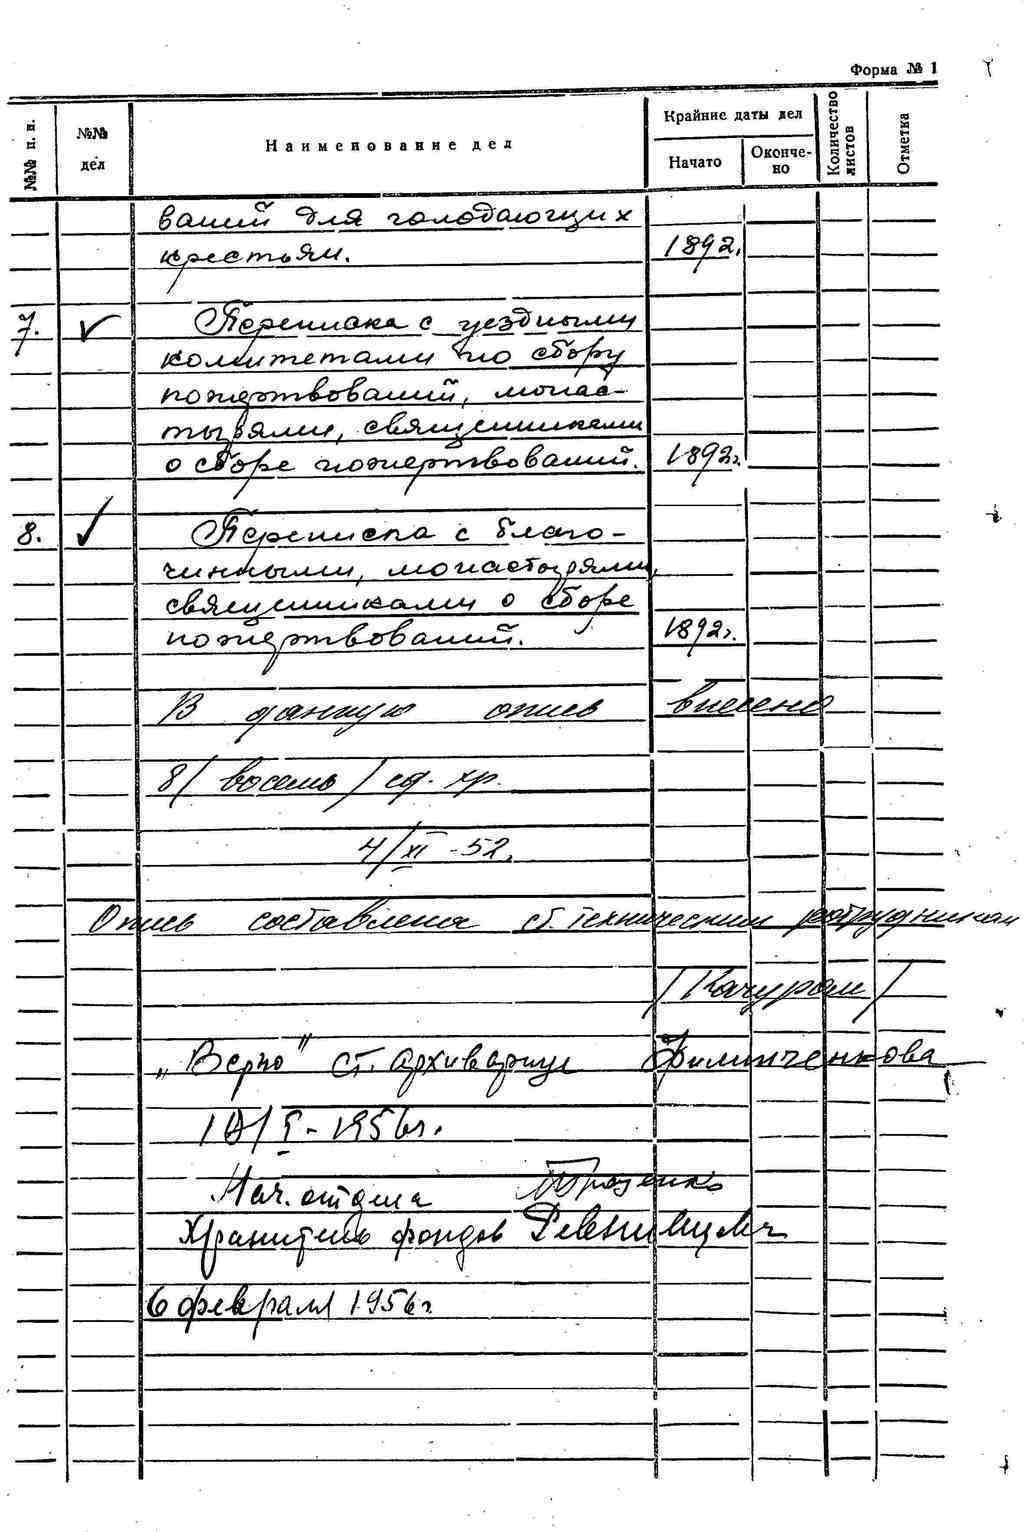 Форма № 1
№№ п. п.
№№ дел
Наименование дел
Крайние даты дел
Начато
Окончено
Количество листов
Отметка
ваний для голодающих
крестьян. 1892.
7. ✓ Переписка с уездными
комитетами по сбору
пожертвований, монас-
тырями, священниками
о сборе пожертвований. 1892г.
8. ✓ Переписка с благо-
чинными, монастырями,
священниками о сборе
пожертвований. 1892г.
В данную опись внесено
8 / восемь / ед. хр.
4/XI -52.
Опись составлена ст. техническим сотрудником
/ Качурам /
„Верно" ст. архивариус Филипченкова
10/I - 1956г.
Нач. отдела
Хранитель фондов
6 февраля 1956г.